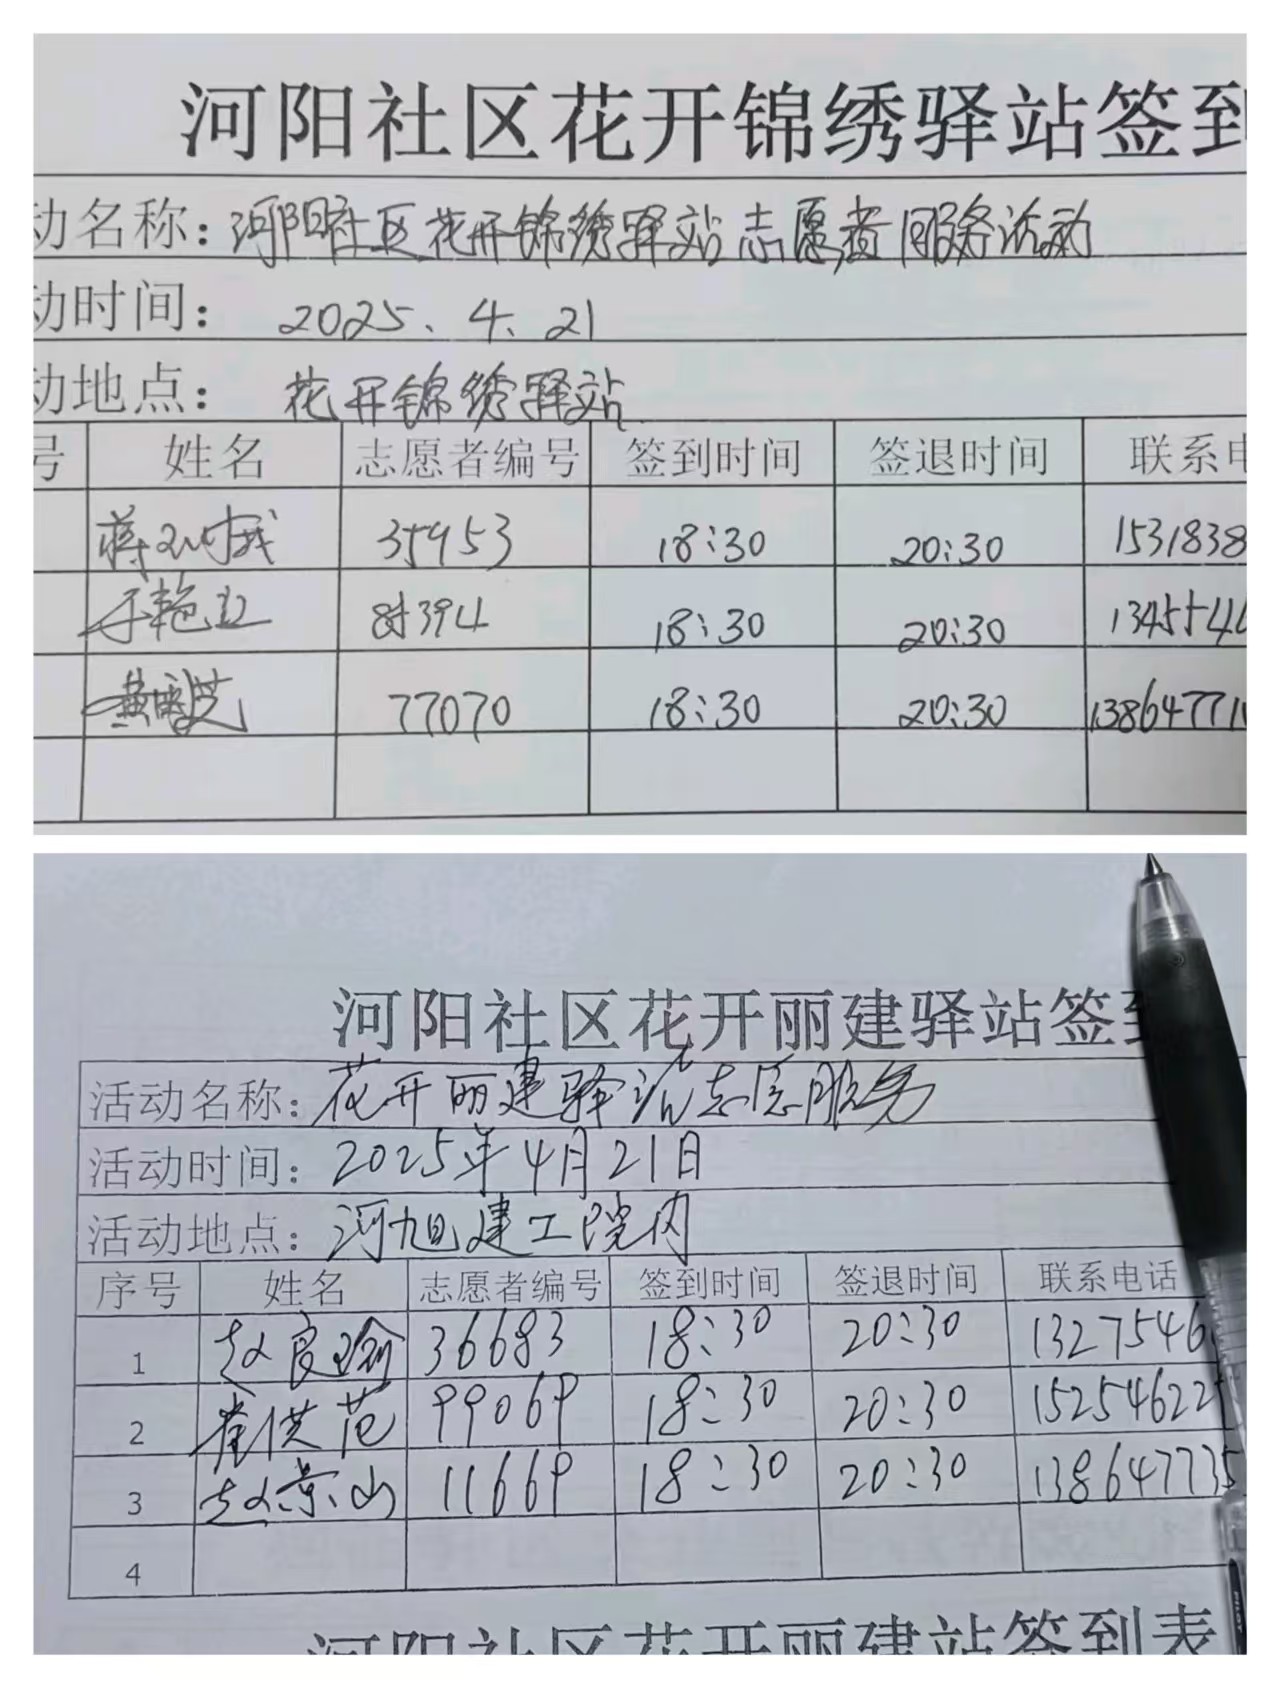 河阳社区花开锦绣驿站签到
动名称：河阳社区花开锦绣驿站志愿者服务活动
动时间：2025.4.21
动地点：花开锦绣驿站
号 姓名 志愿者编号 签到时间 签退时间 联系电
35953 18:30 20:30 1531838
于艳立 85394 18:30 20:30 1345546
77070 18:30 20:30 138647710
河阳社区花开丽建驿站签到
活动名称：花开丽建驿站志愿服务
活动时间：2025年4月21日
活动地点：河旭建工院内
序号 姓名 志愿者编号 签到时间 签退时间 联系电话
1 赵良瑜 36683 18:30 20:30 1327546
2 崔洪范 99069 18:30 20:30 15254622
3 赵景山 11669 18:30 20:30 138647735
4
河阳社区花开丽建站签到表